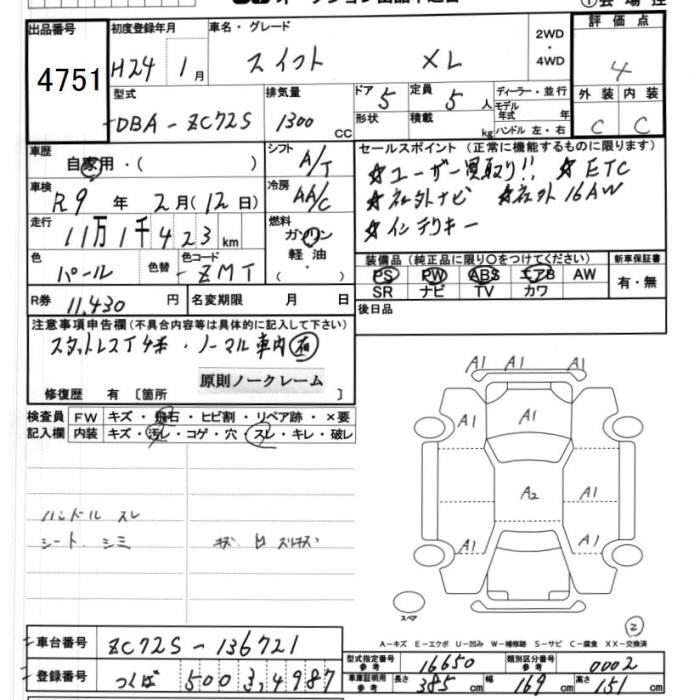 出品番号
4751
初度登録年月
H24 1月
車名・グレード
スイフト XL
2WD
・
4WD
評価点
4
外装 内装
C C
型式
DBA-ZC72S
排気量
1300 CC
ドア
5
定員
5 人
形状
積載
kg
ディーラー・並行
モデル
年式 年
ハンドル 左・右
車歴
自家用・( )
シフト
A/T
車検
R9 年 2月(12日)
冷房
AA/C
走行
11万1千423 km
燃料
ガソリン
軽油
( )
色
パール
色替
色コード
ZMT
R券 11,430 円
名変期限 月 日
セールスポイント(正常に機能するものに限ります)
☆ユーザー買取り!! ☆ETC
☆社外ナビ ☆社外16AW
☆インテリキー
装備品(純正品に限り○をつけてください)
PS PW ABS エアB AW
SR ナビ TV カワ
新車保証書
有・無
後日品
注意事項申告欄(不具合内容等は具体的に記入して下さい)
スタットレスT4本・ノーマル車内有
原則ノークレーム
修復歴 有〔箇所 〕
検査員
記入欄
FW キズ・飛石・ヒビ割・リペア跡・×要
内装 キズ・汚レ・コゲ・穴・スレ・キレ・破レ
ハンドル スレ
シート シミ
A1 A1 A1
A1 A1 A1
A2 A1
A1 A1
スペア
2
A-キズ E-エクボ U-凹み W-補修跡 S-サビ C-腐食 XX-交換済
車台番号 ZC72S-136721
登録番号 つくば 500 ふ 4987
型式指定番号
参考
16650
類別区分番号
参考
0002
車庫証明用
参考
長さ 385 cm 幅 169 cm 高さ 151 cm